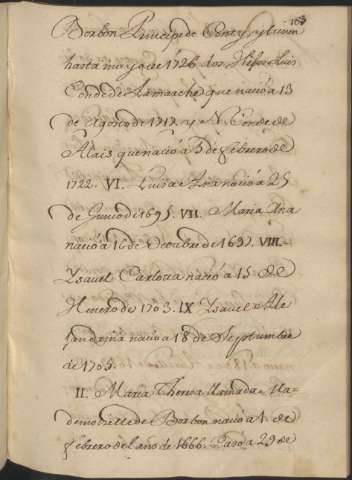 163
Borbon Principe de Conty, y tuvieron
hasta mayo de 1726. dos Hijos Luis
Conde de Lamarche que nació a 13
de Agosto de 1717. y N. Conde de
Alais que nació a 5 de febrero de
1722. VI. Luisa Ana nació a 25
de Junio de 1695. VII. Maria Ana
nació a 16 de Octoubre de 1697. VIII.
Ysavel Carlota nació a 15 de
Henero de 1703. IX Ysavel Ale
jandrina nació a 18 de Septiembre
de 1705.
II. Maria Theresa llamada Ma-
demoiselle de Borbon nació a 1. de
febrero del año de 1666. Casó a 29 de